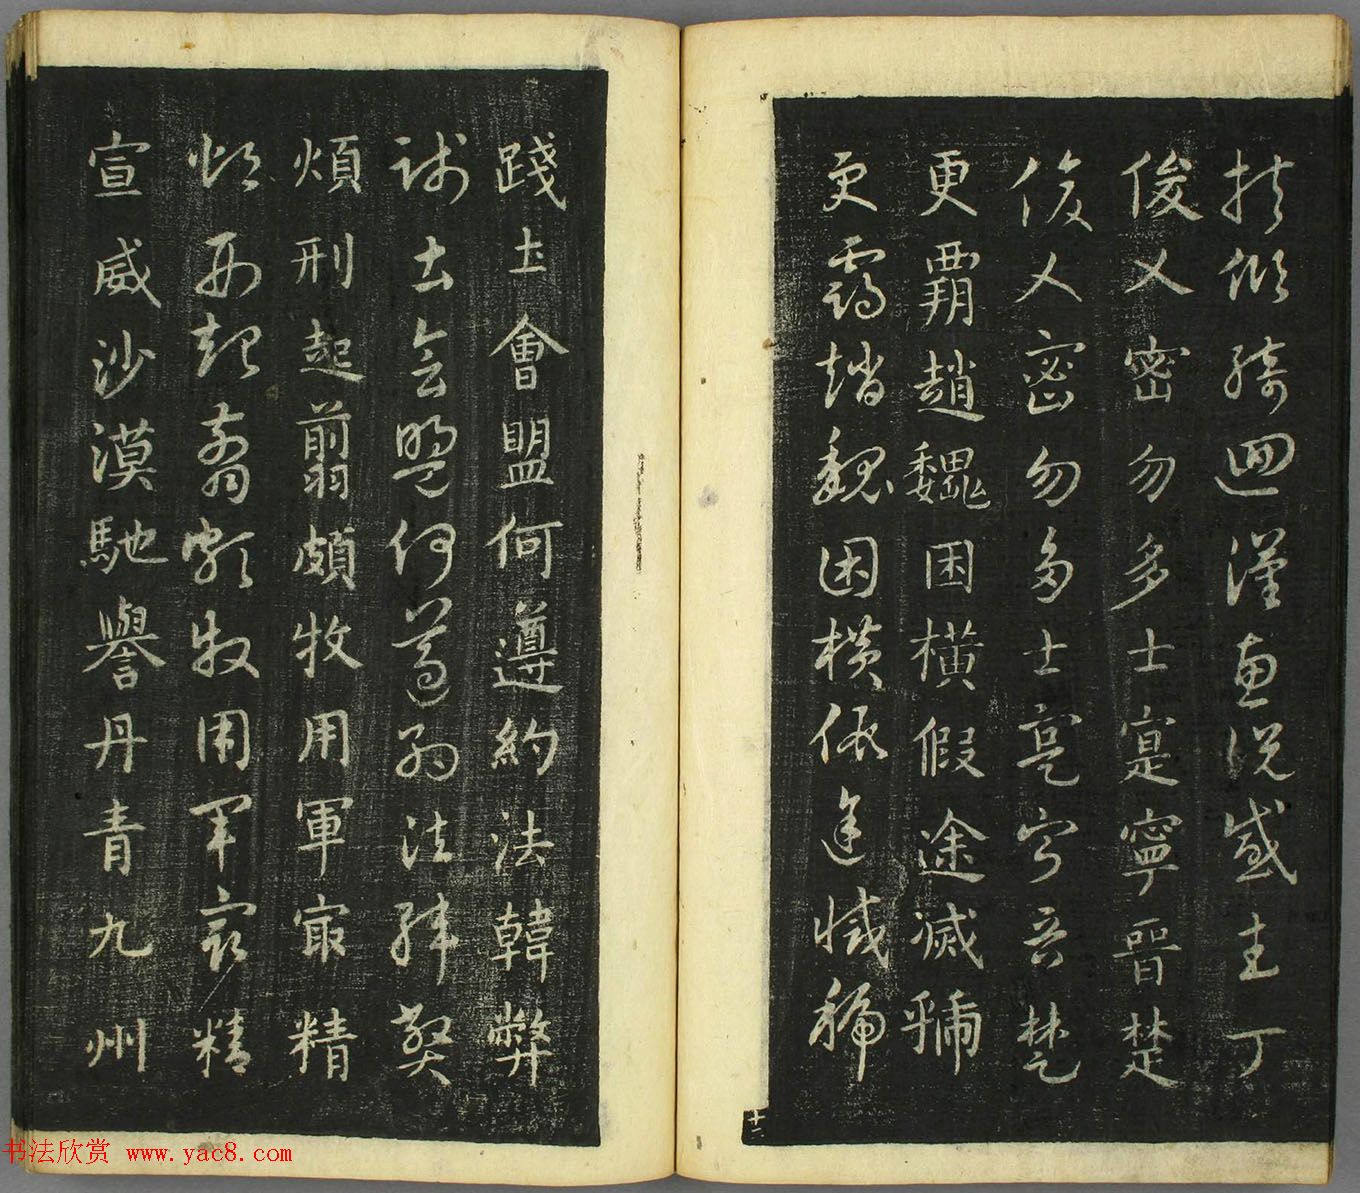 扶傾綺迴漢惠說感武丁
俊乂密勿多士寔寧晉楚
俊乂密勿多士寔寧晉楚
更霸趙魏困橫假途滅虢
更霸趙魏困橫假途滅虢
十二
踐土會盟何遵約法韓弊
踐土會盟何遵約法韓弊
煩刑起翦頗牧用軍最精
煩刑起翦頗牧用軍最精
宣威沙漠馳譽丹青九州
书法欣赏 www.yac8.com